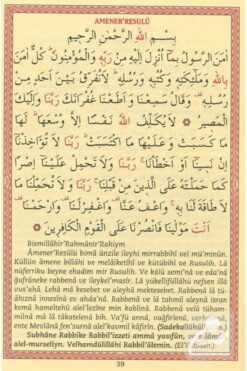 AMENER'RESULÜ
بِسْمِ اللهِ الرَّحْمٰنِ الرَّحِيمِ
اٰمَنَ الرَّسُولُ بِمَا اُنْزِلَ اِلَيْهِ مِنْ رَبِّهِ وَالْمُؤْمِنُونَ كُلٌّ اٰمَنَ
بِاللهِ وَمَلٰئِكَتِهِ وَكُتُبِهِ وَرُسُلِهِ لَا نُفَرِّقُ بَيْنَ اَحَدٍ مِنْ
رُسُلِهِ وَقَالُوا سَمِعْنَا وَاَطَعْنَا غُفْرَانَكَ رَبَّنَا وَاِلَيْكَ
الْمَصِيرُ لَا يُكَلِّفُ اللهُ نَفْسًا اِلَّا وُسْعَهَا لَهَا
مَا كَسَبَتْ وَعَلَيْهَا مَا اكْتَسَبَتْ رَبَّنَا لَا تُؤَاخِذْنَا
اِنْ نَسِينَا اَوْ اَخْطَأْنَا رَبَّنَا وَلَا تَحْمِلْ عَلَيْنَا اِصْرًا
كَمَا حَمَلْتَهُ عَلَى الَّذِينَ مِنْ قَبْلِنَا رَبَّنَا وَلَا تُحَمِّلْنَا مَا
لَا طَاقَةَ لَنَا بِهِ وَاعْفُ عَنَّا وَاغْفِرْ لَنَا وَارْحَمْنَا
اَنْتَ مَوْلٰينَا فَانْصُرْنَا عَلَى الْقَوْمِ الْكَافِرِينَ
Bismillâhir'Rahmânir'Rahiym
Âmener'Resulü bimâ ünzile ileyhi mirrabbihî vel mü'minûn.
Küllün âmene billâhi ve melâiketihî ve kütübihî ve Rusulih. Lâ
nüferriku beyne ehadim mir Rusulih. Ve kâlû semi'nâ ve eda'nâ
ğufrâneke rabbenâ ve ileykel'masîr. Lâ yükellifüllâhü nefsen illâ
vus'ahâ. Lehâ mâ kesebet ve aleyhâ mektesebet. Rabbenâ lâ
tüâhiznâ inneseynâ ev ahda'nâ. Rabbenâ ve lâ tahmil aleynâ isran
kemâ hameltehû alel'lezîne min kablinâ. Rabbenâ velâ tüham-
milnâ mâ lâ tâkatelenâ bih. Va'fü annâ, vağfirlenâ, verhamnâ,
ente Mevlânâ fen'surnâ alel'kavmil kâfirîn. (Sadekallâhül'
Subhâne Rabbike Rabbil'izzeti ammâ yasifûn, ve selâmün
alel-murseliyn. Velhamdülillâhi Rabbil'âlemin. (El'Fâtiha)
39